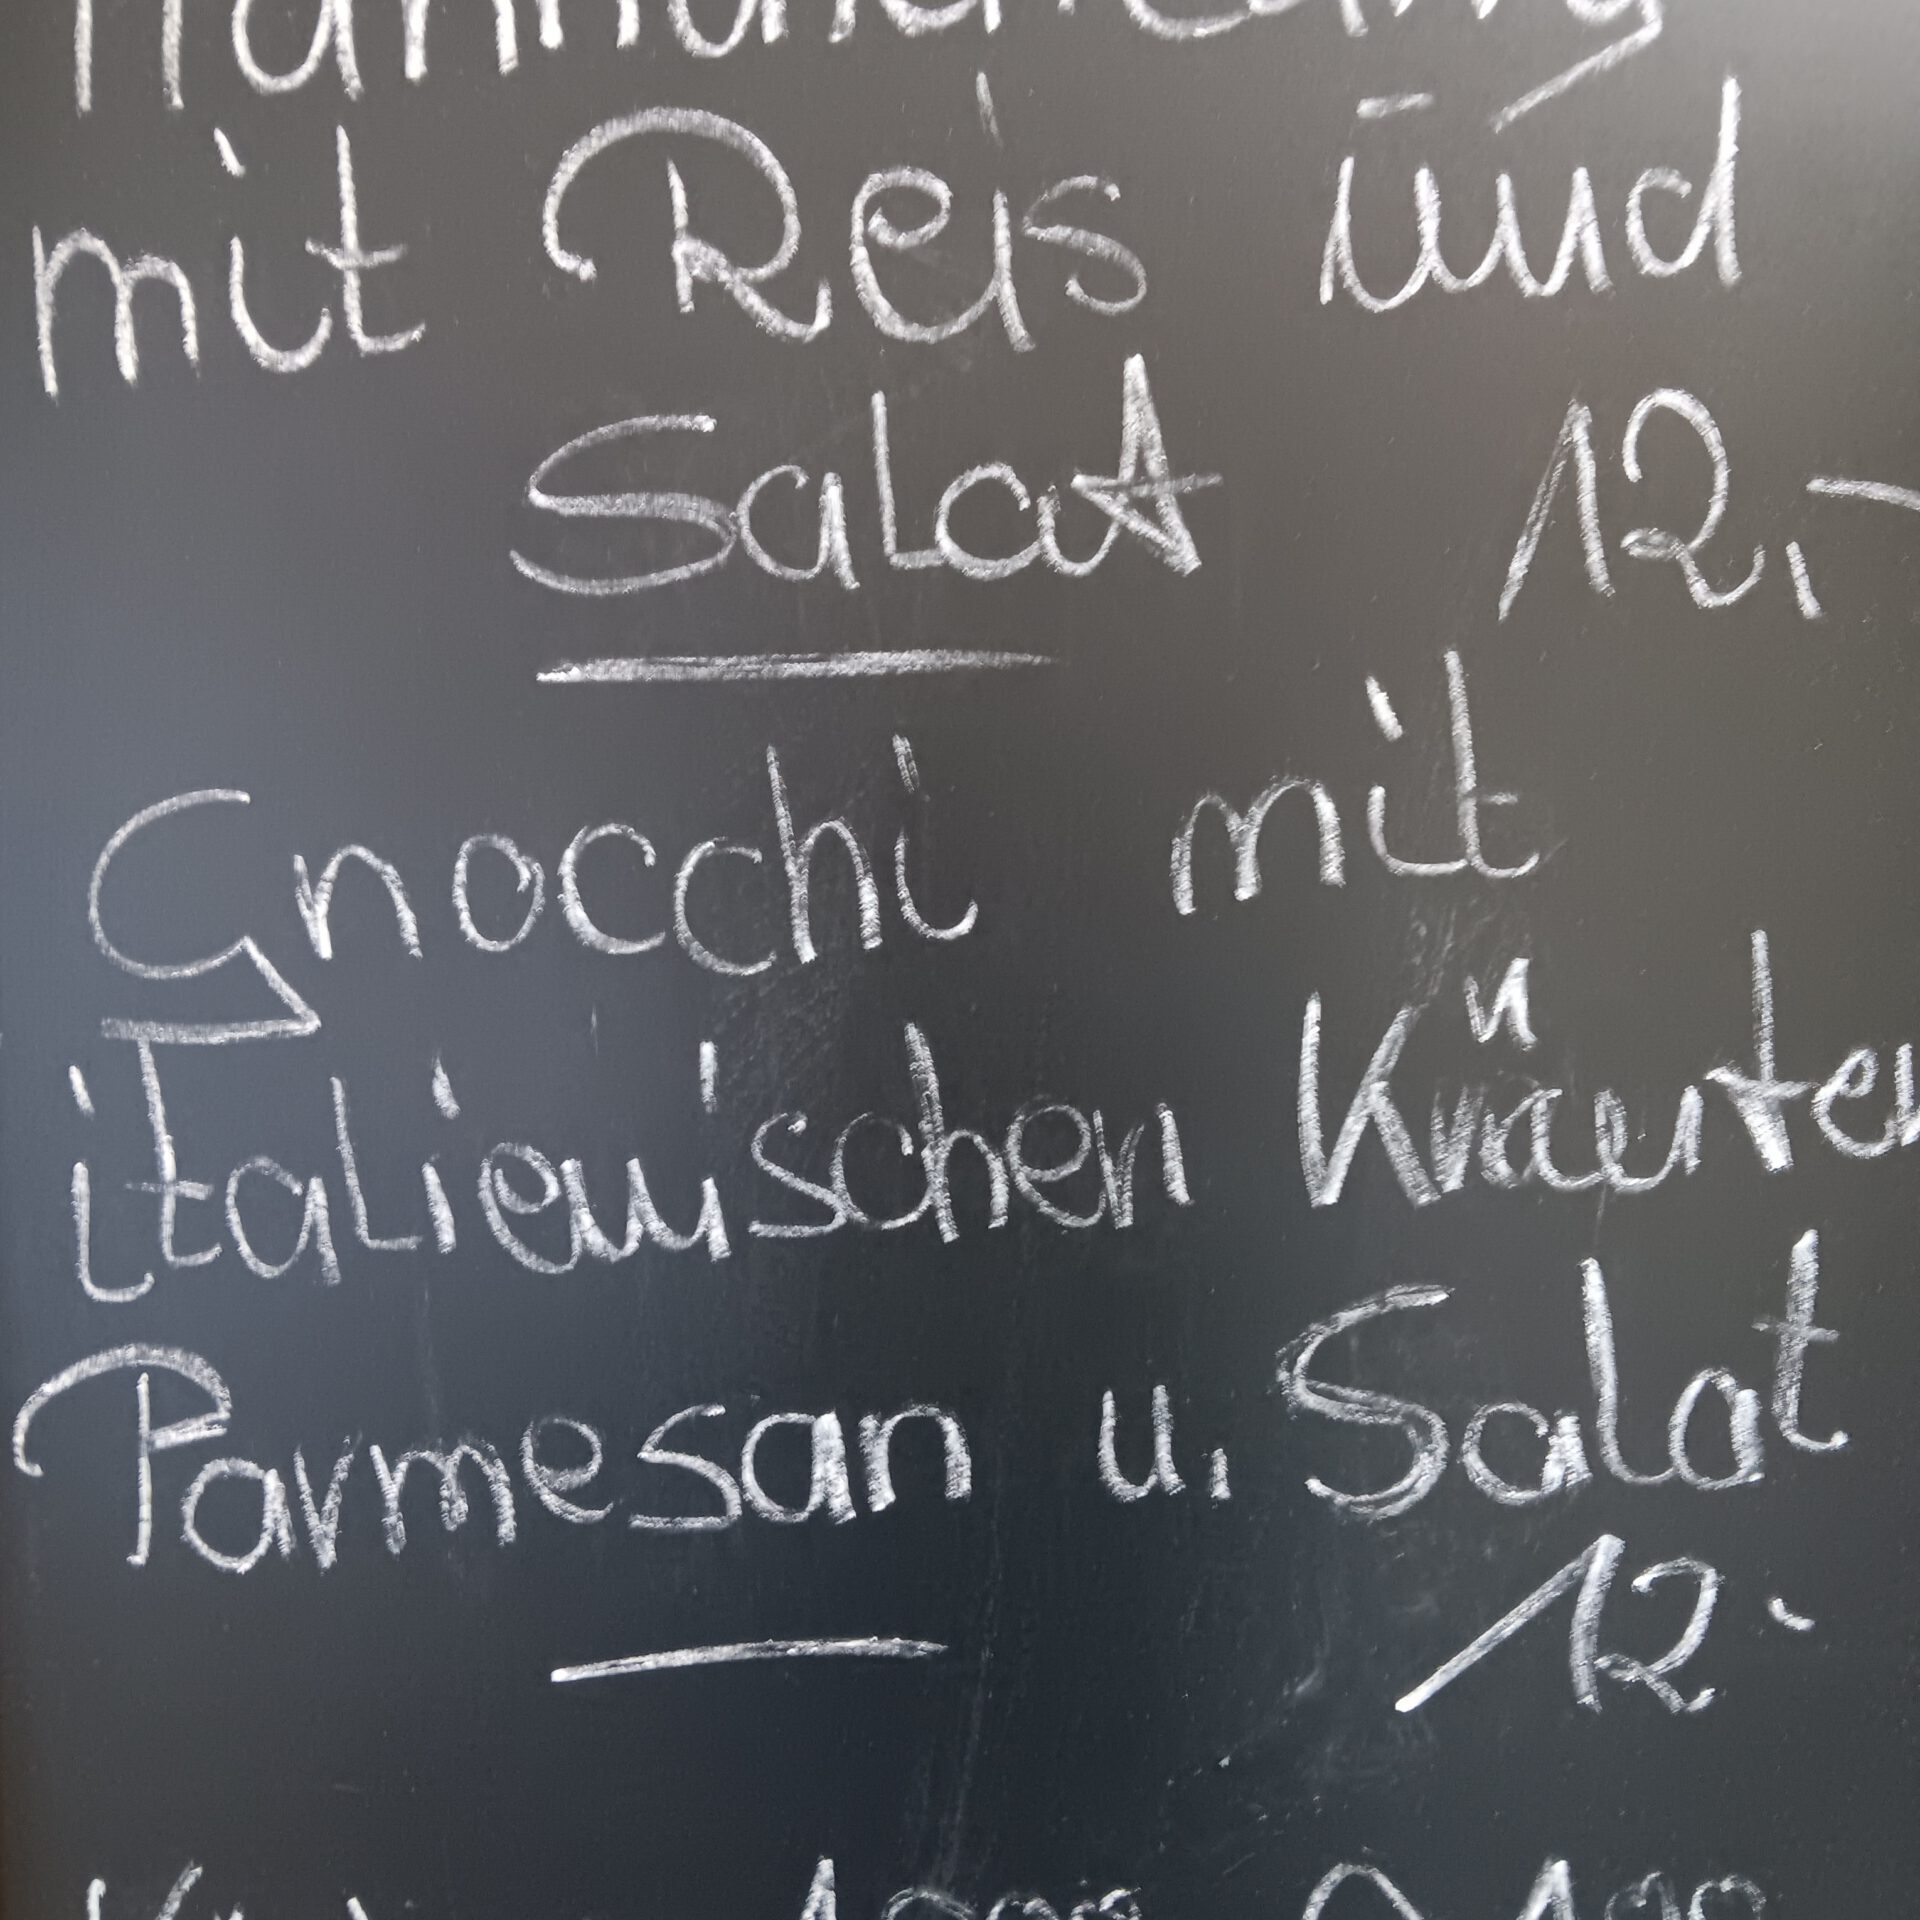 mit Reis und
Salat 12,-
Gnocchi mit
italienischen Kräuter
Parmesan u. Salat
12.-